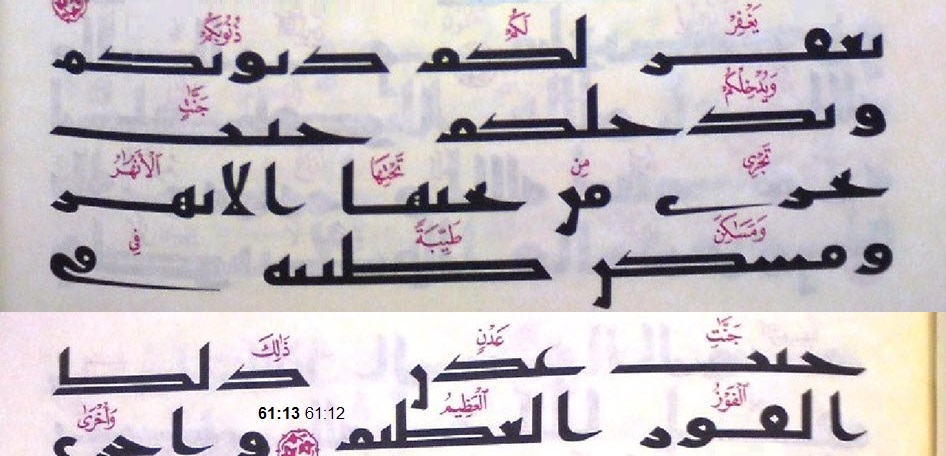 يَغْفِرْ لَكُمْ ذُنُوبَكُمْ
يغفر لكم ذنوبكم
وَيُدْخِلْكُمْ جَنَّٰتٍ
ويدخلكم جنت
تَجْرِي مِن تَحْتِهَا ٱلْأَنْهَٰرُ
تجرى من تحتها الانهر
وَمَسَٰكِنَ طَيِّبَةً فِي
ومسكن طيبه فى
جَنَّٰتِ عَدْنٍ ذَٰلِكَ
جنت عدن ذلك
ٱلْفَوْزُ ٱلْعَظِيمُ 61:13 61:12 وَأُخْرَىٰ
الفوز العظيم واخرى